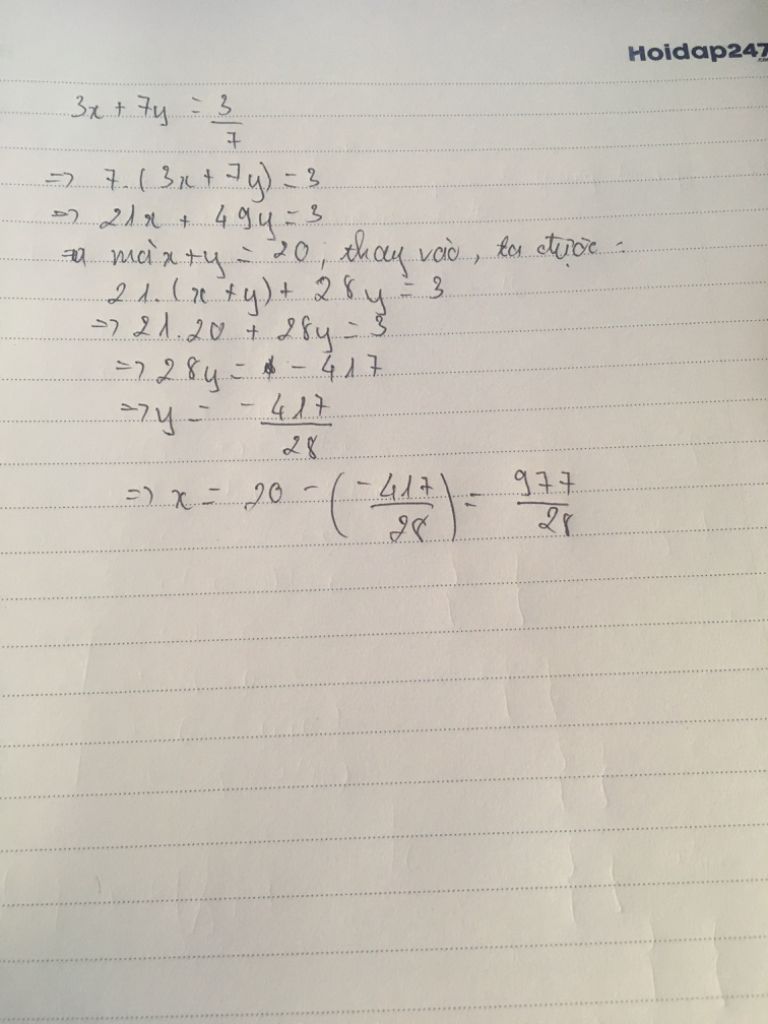 Hoidap247
3x + 7y = 3/7
=> 7.(3x + 7y) = 3
=> 21x + 49y = 3
mà x+y = 20, thay vào, ta được:
21.(x+y) + 28y = 3
=> 21.20 + 28y = 3
=> 28y = - 417
=> y = - 417/28
=> x = 20 - (- 417/28) = 977/28